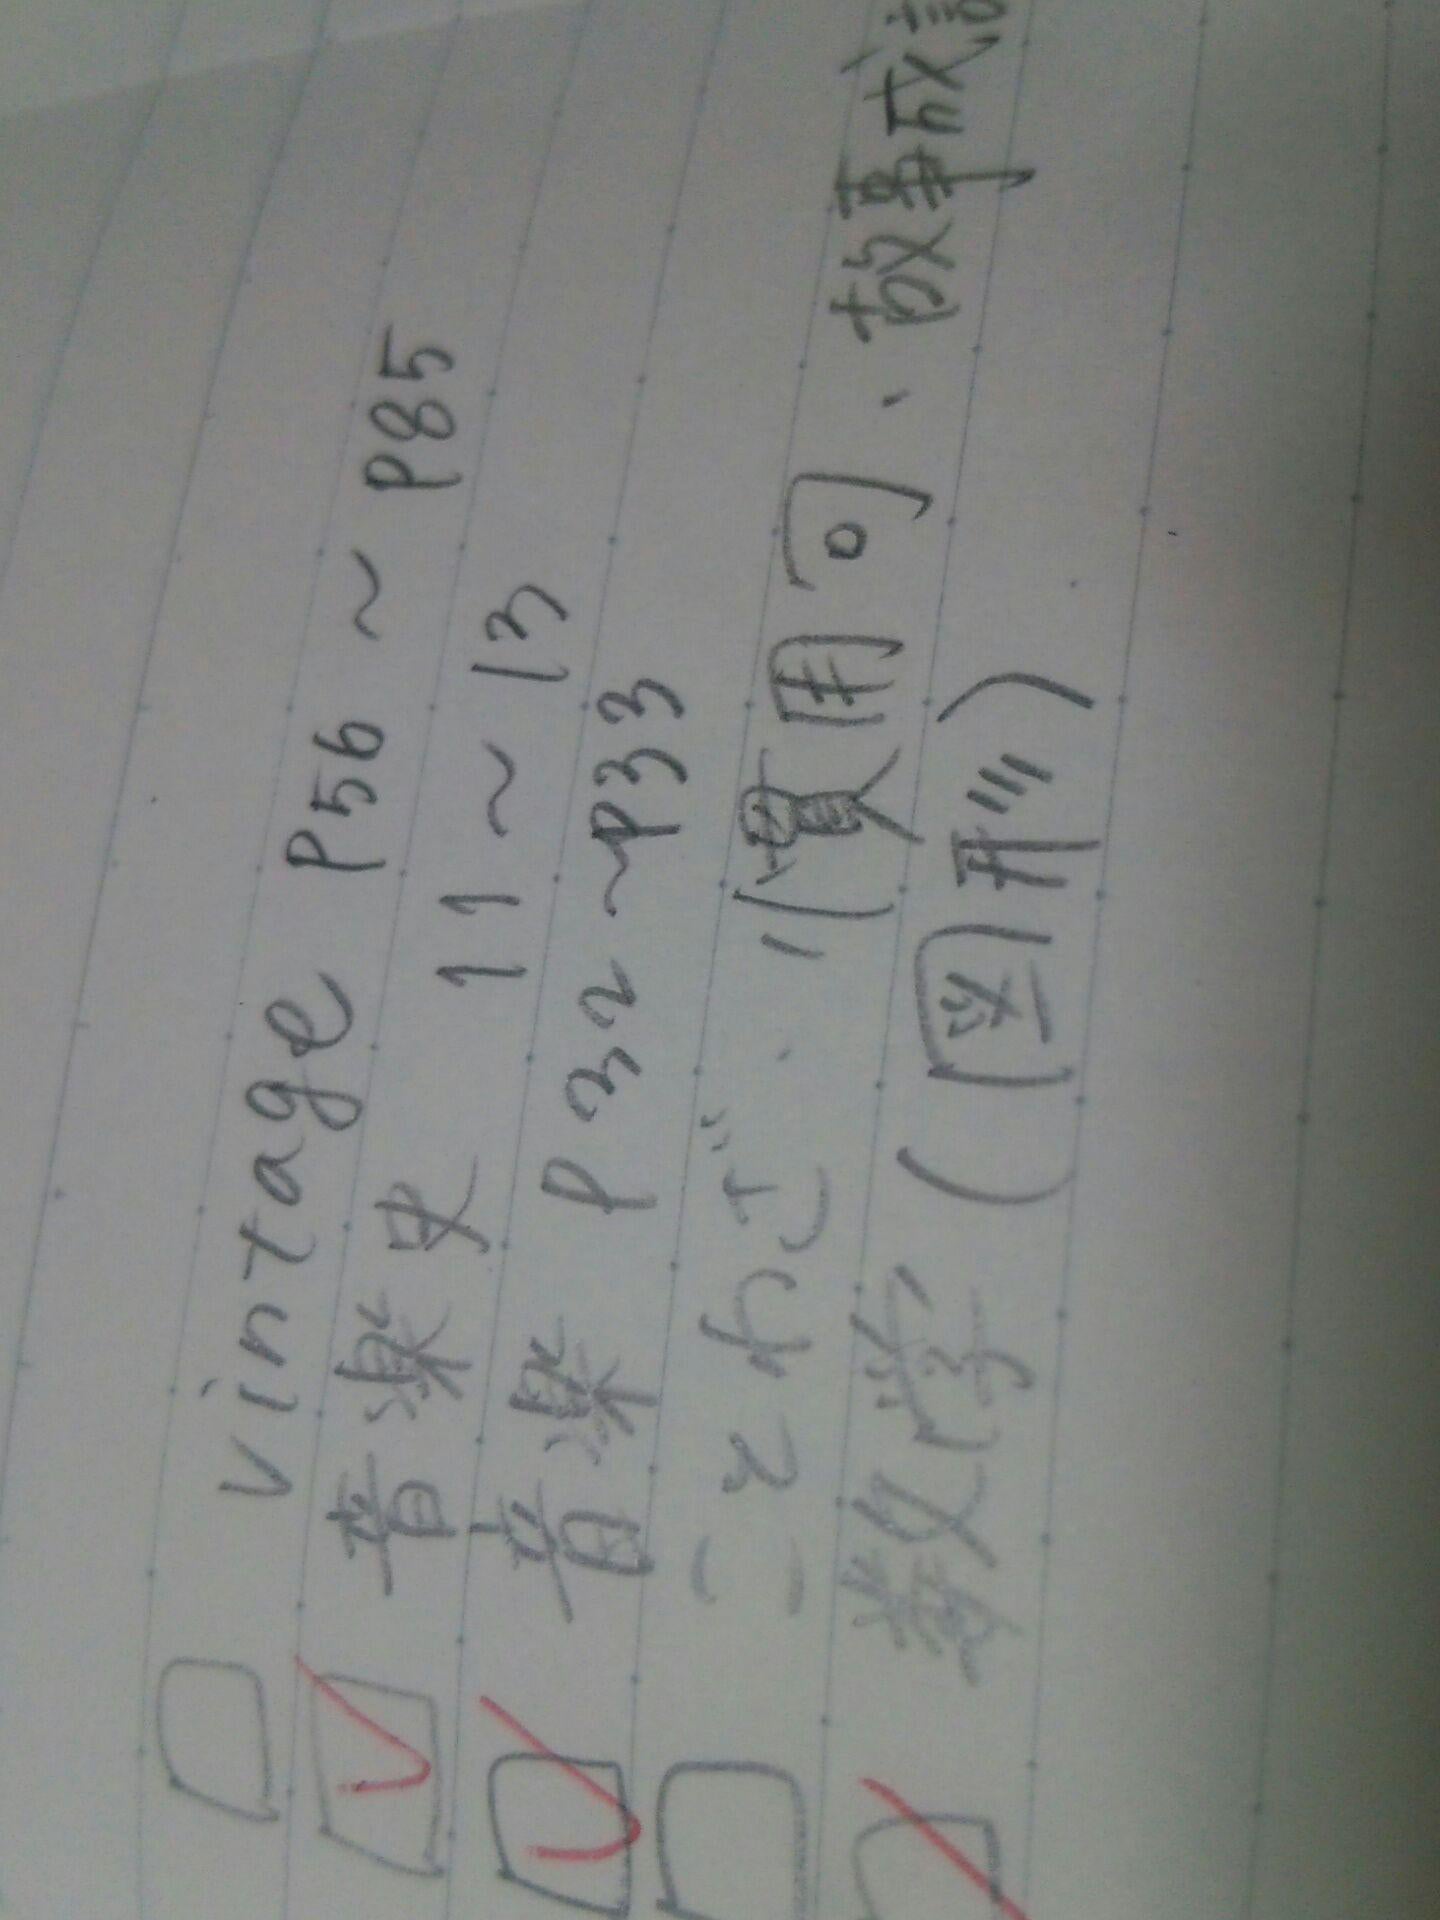 □ vintage P56 ~ P85
☑ 音楽史 11 ~ 13
☑ 音楽 P32 ~ P33
□ ことわざ・慣用句・故事成語
☑ 数学 (図形)